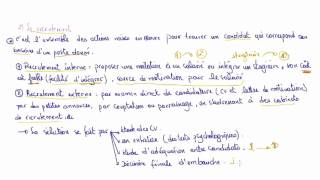 le recrutement
C'est l'ensemble des actions mises en œuvre pour trouver un candidat qui correspond aux
besoins d'un poste donné.
stagiaire
Recrutement interne : proposer une mutation à un salarié ou intégrer un stagiaire, son coût
est faible (facilité d'intégrer), source de motivation pour le salarié
Recrutement externe : par moyen direct de candidatures (CV et lettre de motivation)
par des petites annonces, par cooptation ou parrainage, en s'adressant à des cabinets
de recrutement etc
La sélection se fait par
étude des CV.
un entretien (des tests psychologiques)
étude d'adéquation entre candidats
Décision finale d'embauche